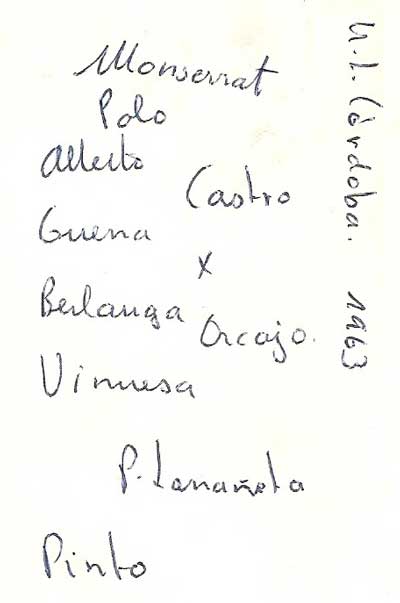 Monserrat
Polo
Alberto
Castro
Guerra
x
Berlanga
Orcajo.
Vinuesa
P.
Pinto
U.L. Córdoba. 1963